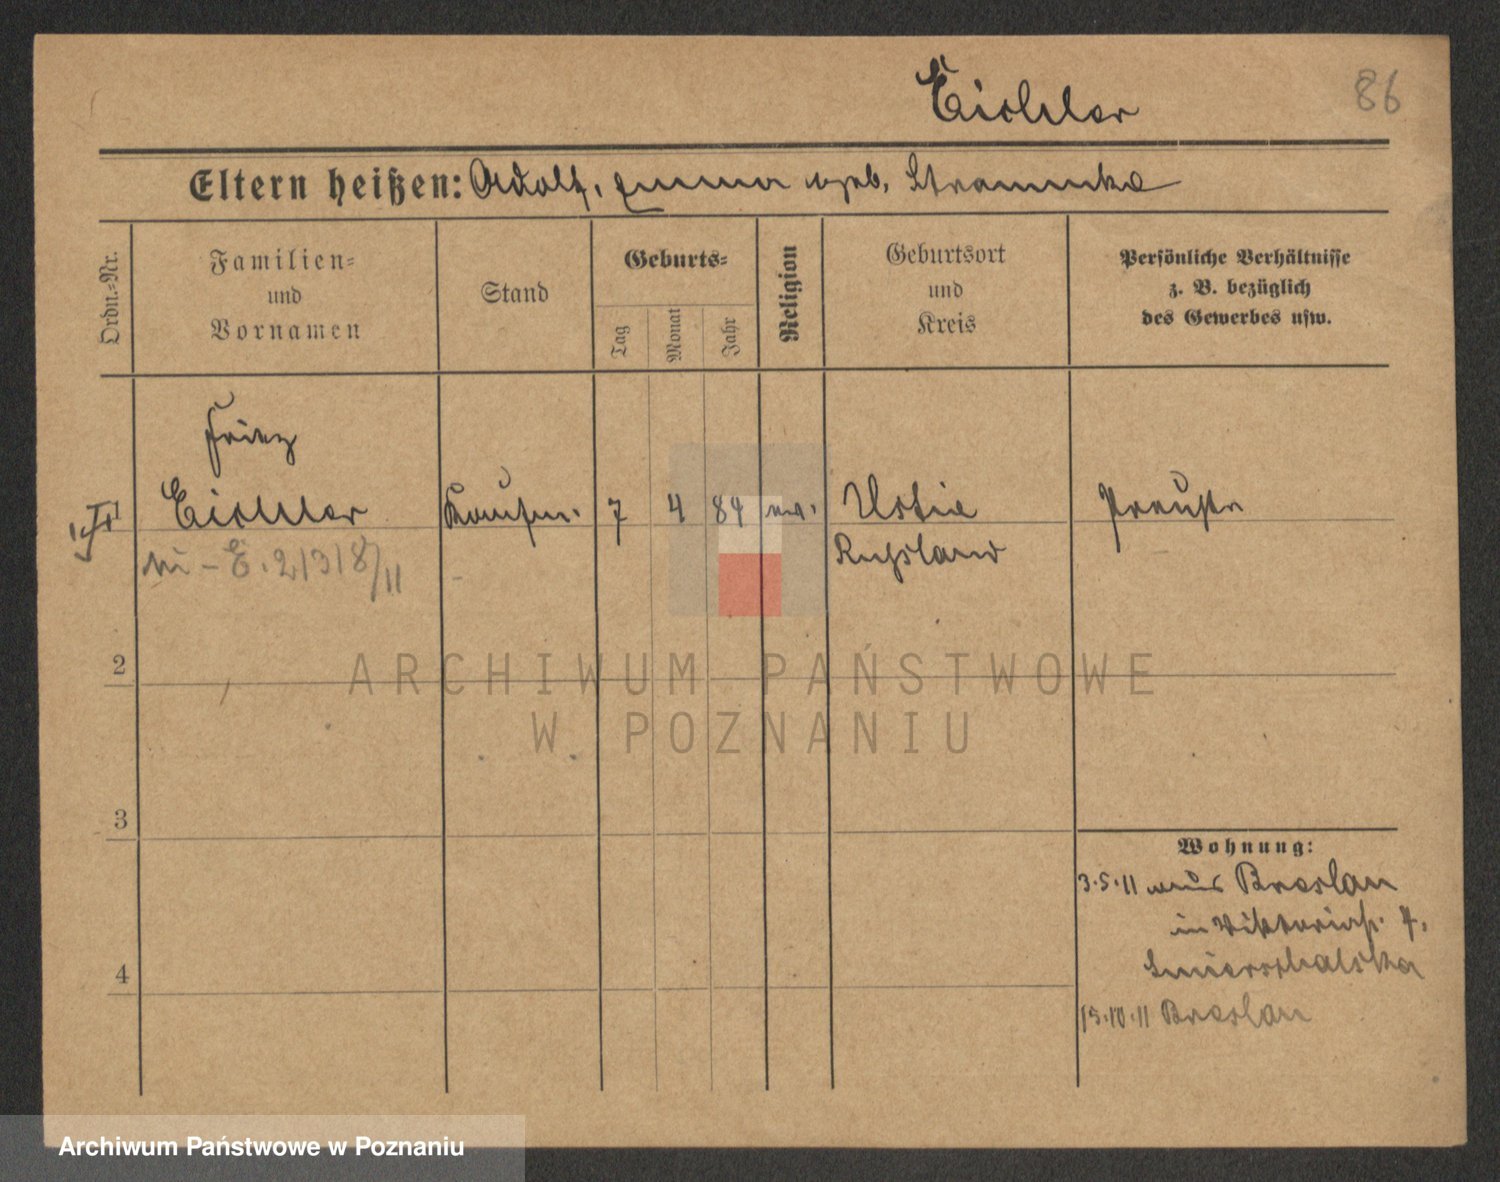 Eichler
86
Eltern heißen: Adolf, Emma geb. Stramnka
Ordn.-Nr.
Familien-
und
Vornamen
Stand
Geburts-
Tag
Monat
Jahr
Religion
Geburtsort
und
Kreis
Persönliche Verhältnisse
z. B. bezüglich
des Gewerbes usw.
Fritz
1 Eichler Kaufm. 7 4 84 ev. Ustie Preuße
E. 2131 8/11 Russland
2
3
4
Wohnung:
3.5.11 aus Breslau
in Viktoriastr. 7,
15.10.11 Breslau
ARCHIWUM PAŃSTWOWE
W POZNANIU
Archiwum Państwowe w Poznaniu